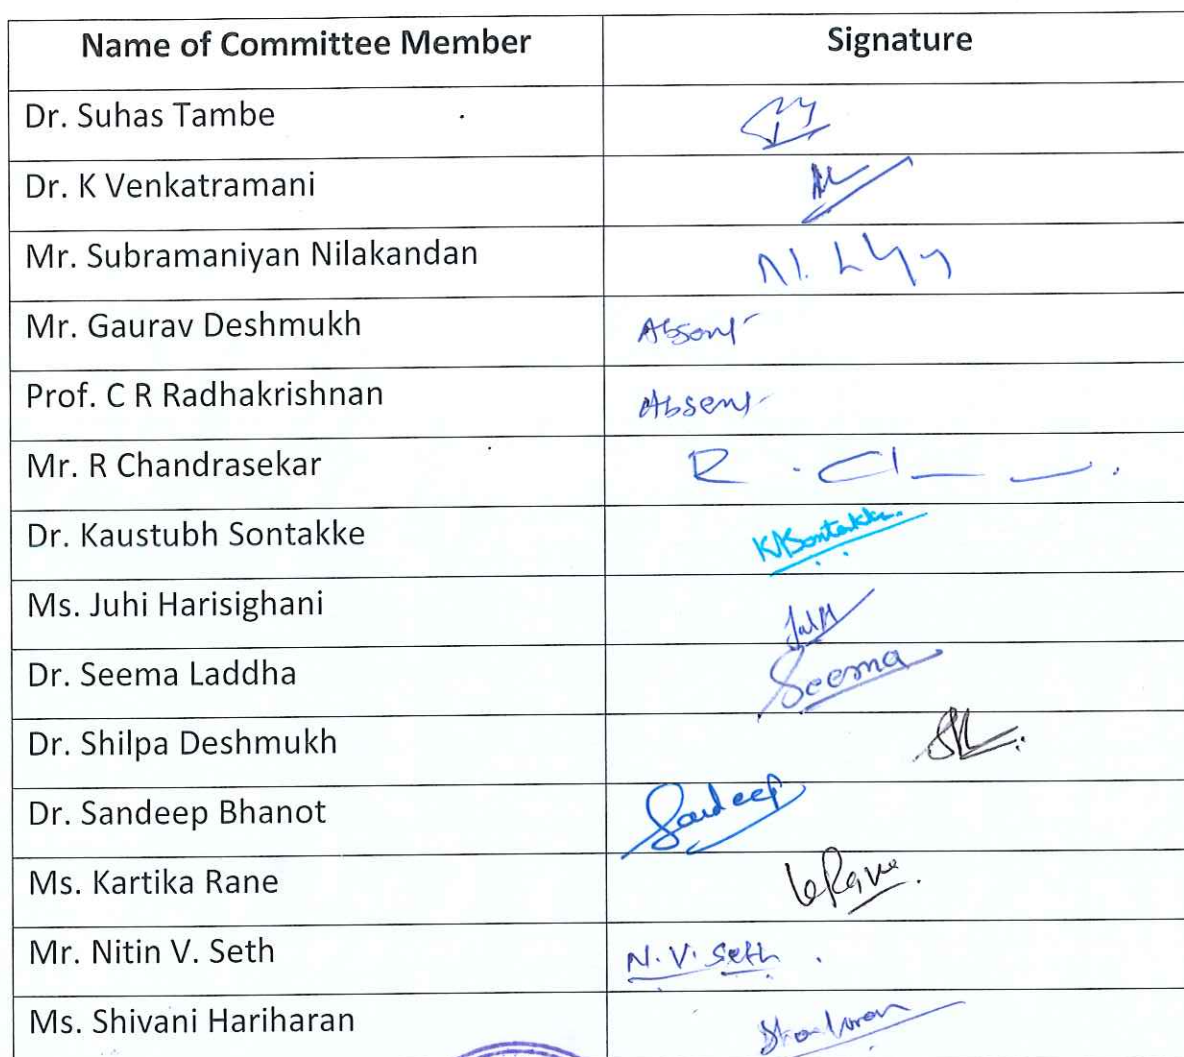 Name of Committee Member Signature
Dr. Suhas Tambe
Dr. K Venkatramani
Mr. Subramaniyan Nilakandan
Mr. Gaurav Deshmukh Absent
Prof. C R Radhakrishnan Absent
Mr. R Chandrasekar
Dr. Kaustubh Sontakke KNSontakke
Ms. Juhi Harisighani
Dr. Seema Laddha Seema
Dr. Shilpa Deshmukh
Dr. Sandeep Bhanot Sandeep
Ms. Kartika Rane
Mr. Nitin V. Seth N.V. Seth
Ms. Shivani Hariharan